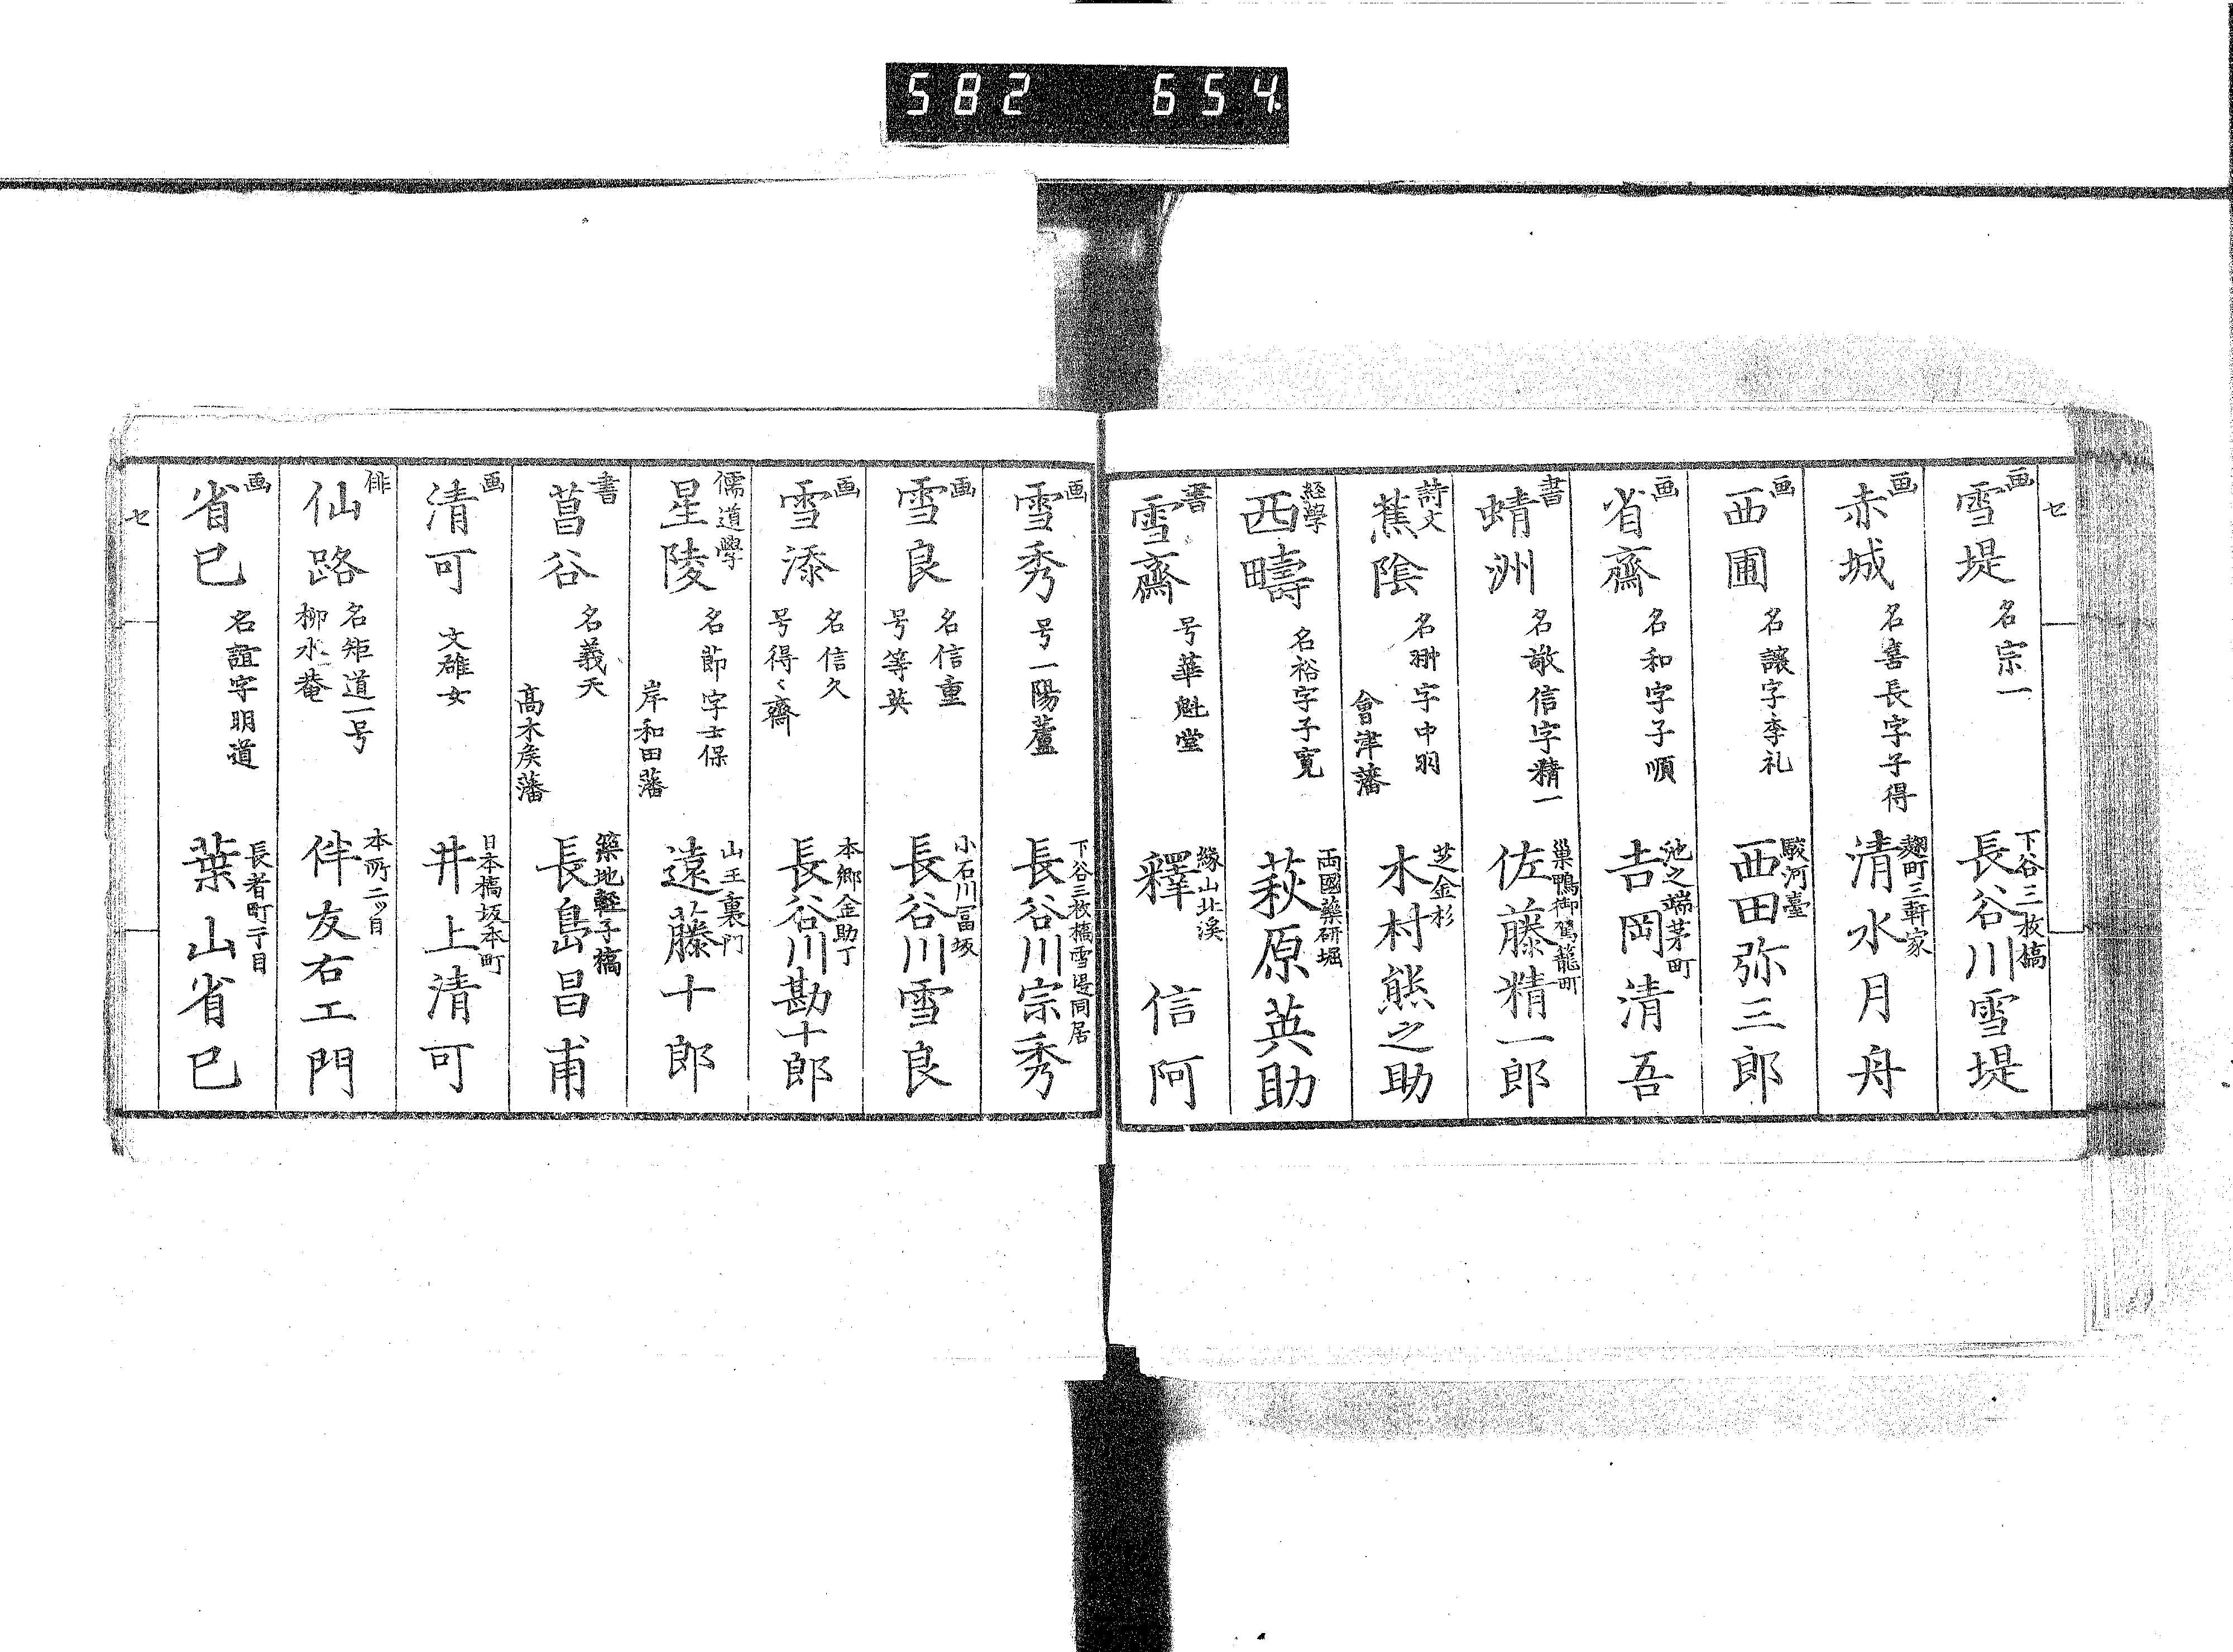 582 654
セ
画 雪堤 名宗一 下谷三枚橋 長谷川雪堤
画 赤城 名喜長字子得 麹町三軒家 清水月舟
画 西圃 名譲字李礼 駿河臺 西田弥三郎
画 省齋 名和字子順 池之端茅町 吉岡清吾
書 蜻洲 名敬信字精一 巣鴨御駕籠町 佐藤精一郎
詩文 蕉陰 名翀字中羽 會津藩 芝金杉 水村熊之助
経學 西疇 名裕字子寛 両國藥研堀 萩原英助
書 雪齋 号華魁堂 縁山北溪 釋信阿
画 雪秀 号一陽蘆 下谷三枚橋雪堤同居 長谷川宗秀
画 雪良 名信重 号等英 小石川冨坂 長谷川雪良
画 雪漆 名信久 号得〻齋 本郷金助丁 長谷川勘十郎
儒道學 星陵 名節字士保 岸和田藩 山王裏門 遠藤十郎
書 菖谷 名義天 高木矦藩 築地軽子橋 長島昌甫
画 清可 文雄女 日本橋坂本町 井上清可
俳 仙路 名矩道一号 柳水菴 本所二ッ目 伴友右エ門
画 省巳 名誼字明道 長者町丁目 葉山省巳
セ